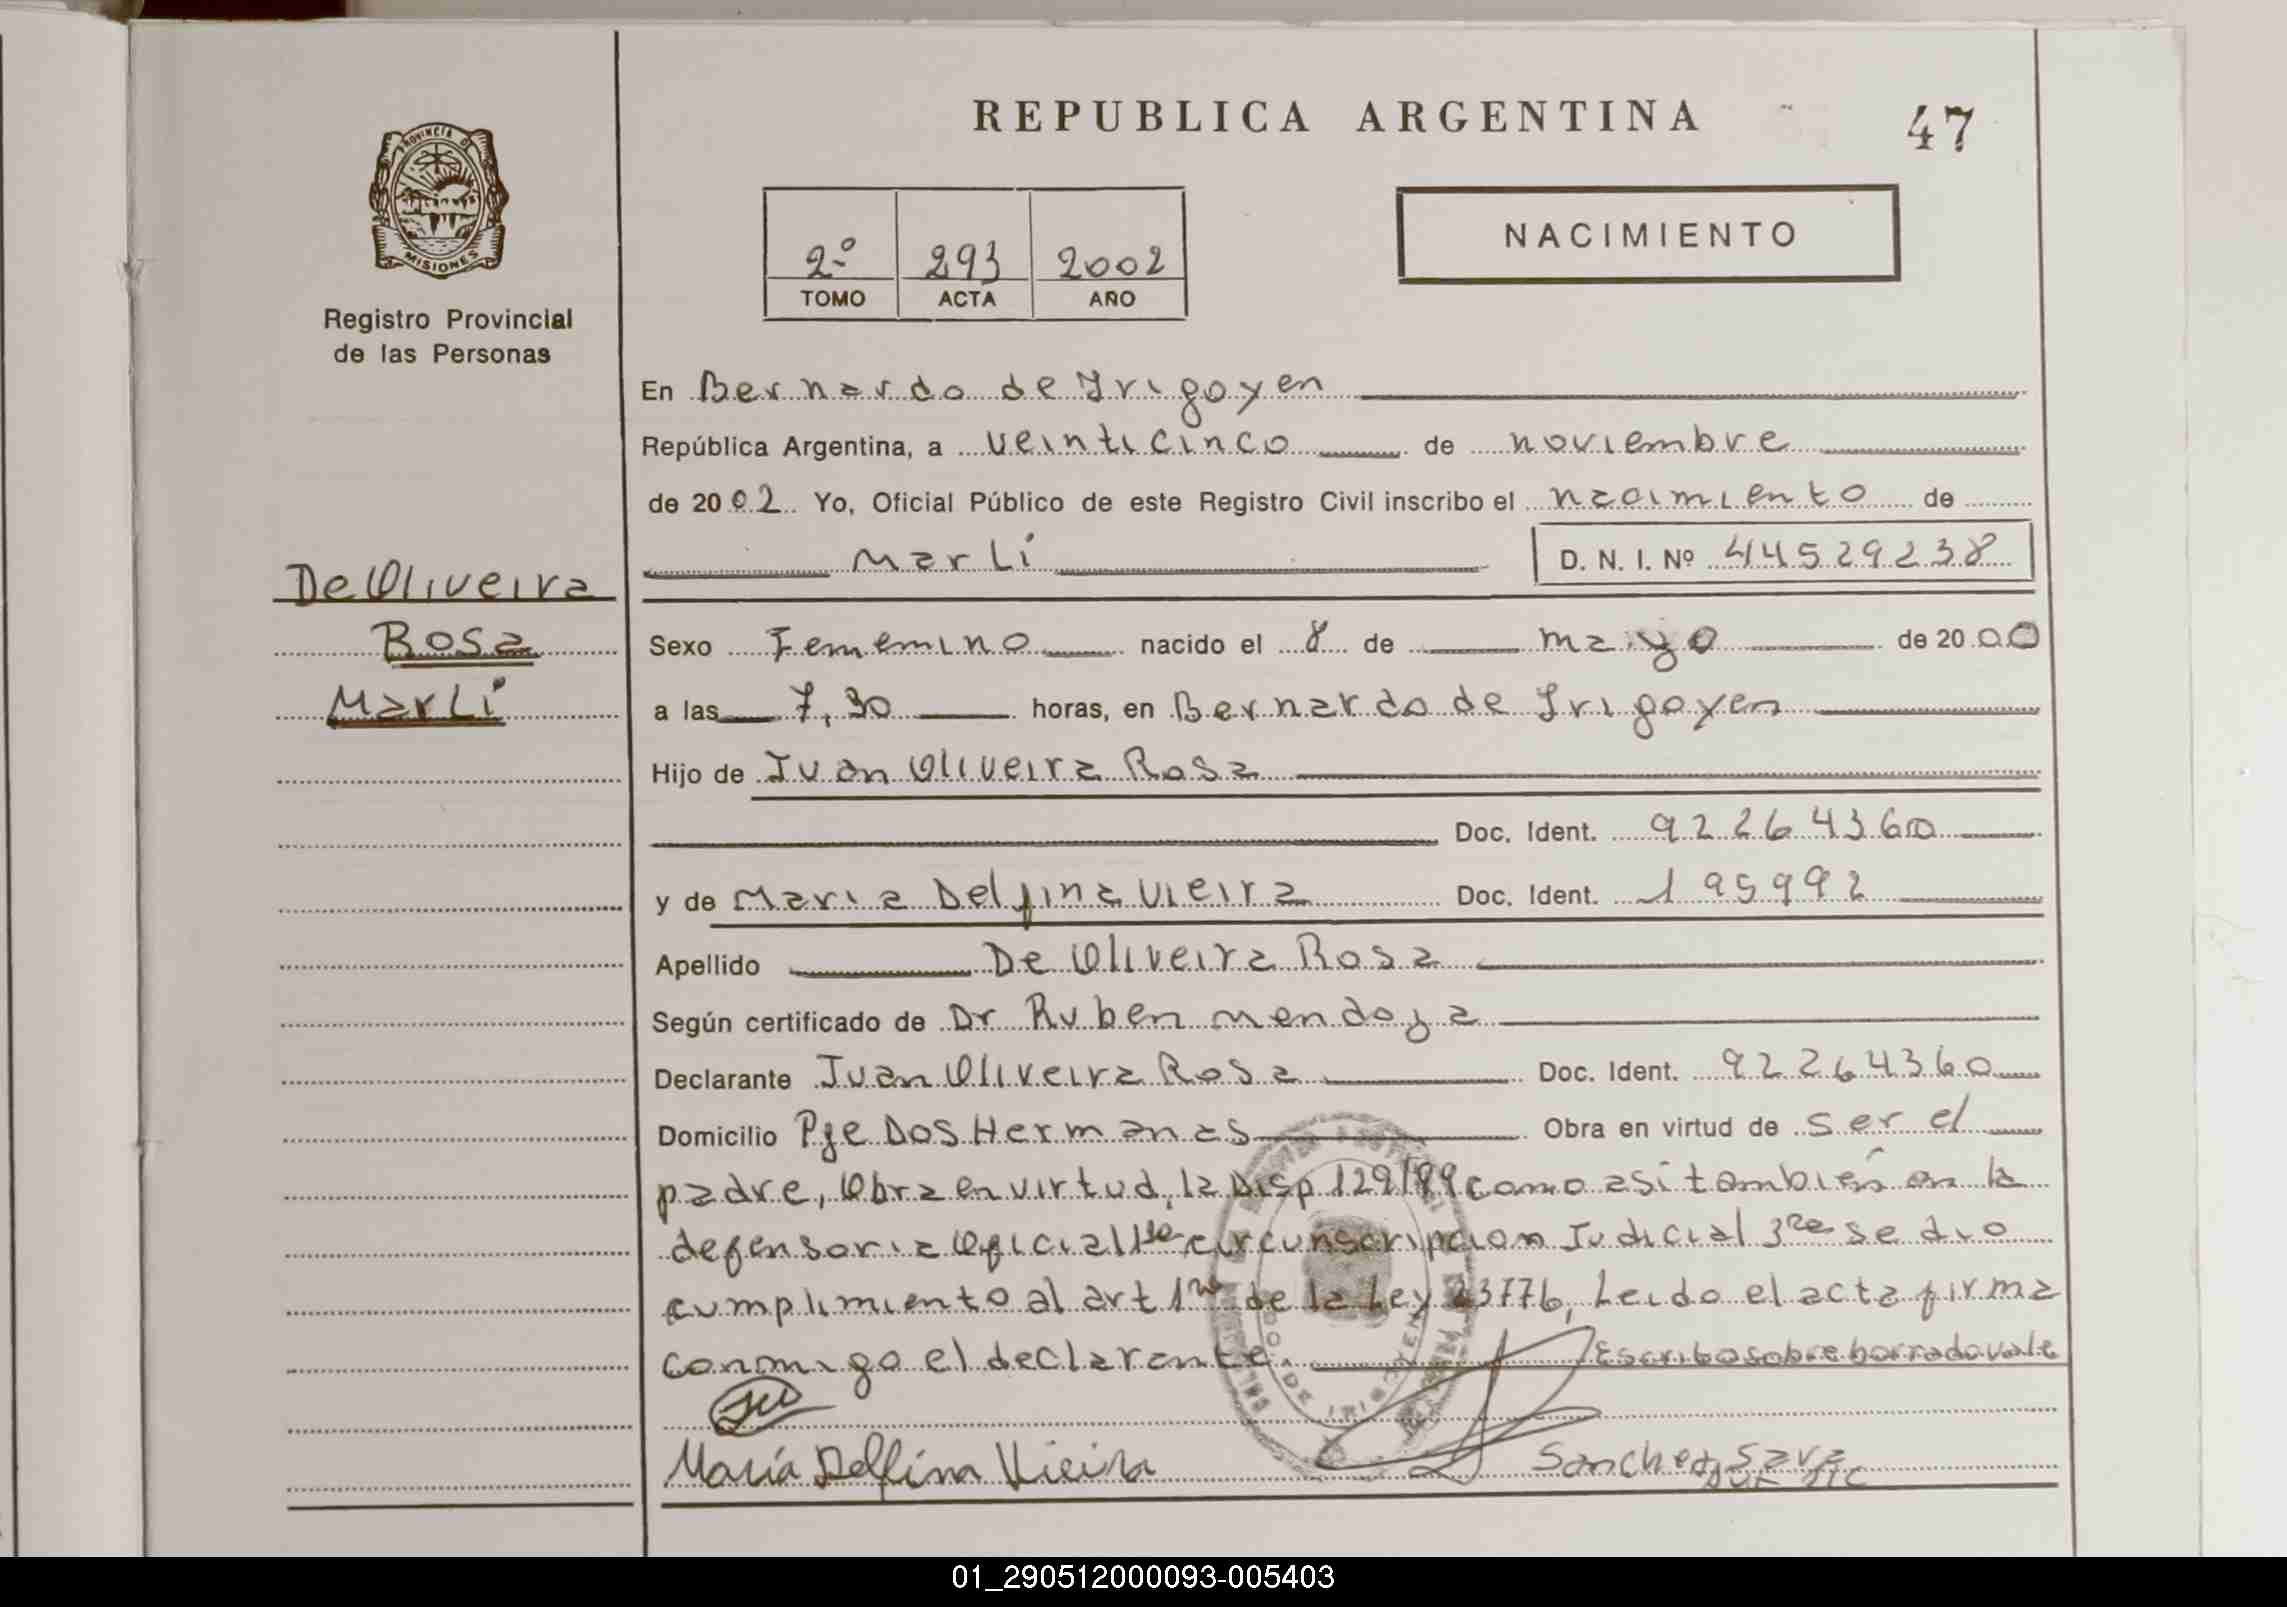 REPUBLICA ARGENTINA
47
PROVINCIA DE
MISIONES
Registro Provincial
de las Personas
2º 293 2002
TOMO ACTA AÑO
NACIMIENTO
De Oliveira
Rosa
Marli
En Bernardo de Irigoyen
República Argentina, a veinticinco de noviembre
de 2002 Yo, Oficial Público de este Registro Civil inscribo el nacimiento de
Marli D. N. I. Nº 44529238
Sexo Femenino nacido el 8 de mayo de 2000
a las 7,30 horas, en Bernardo de Irigoyen
Hijo de Juan Oliveira Rosa
Doc. Ident. 92264360
y de Maria Delfina Vieira Doc. Ident. 195992
Apellido De Oliveira Rosa
Según certificado de Dr Ruben Mendoza
Declarante Juan Oliveira Rosa Doc. Ident. 92264360
Domicilio Pje Dos Hermanas Obra en virtud de ser el
padre, Obra en virtud, la Disp 129/99 como asi también en la
defensoria Oficial 1ra circunscripcion Judicial 3ra se dio
cumplimiento al art 1ro de la Ley 23776, Leido el acta firma
conmigo el declarante. Escribo sobre borrado vale
María Delfina Vieira
Sanchez Sara
01_290512000093-005403